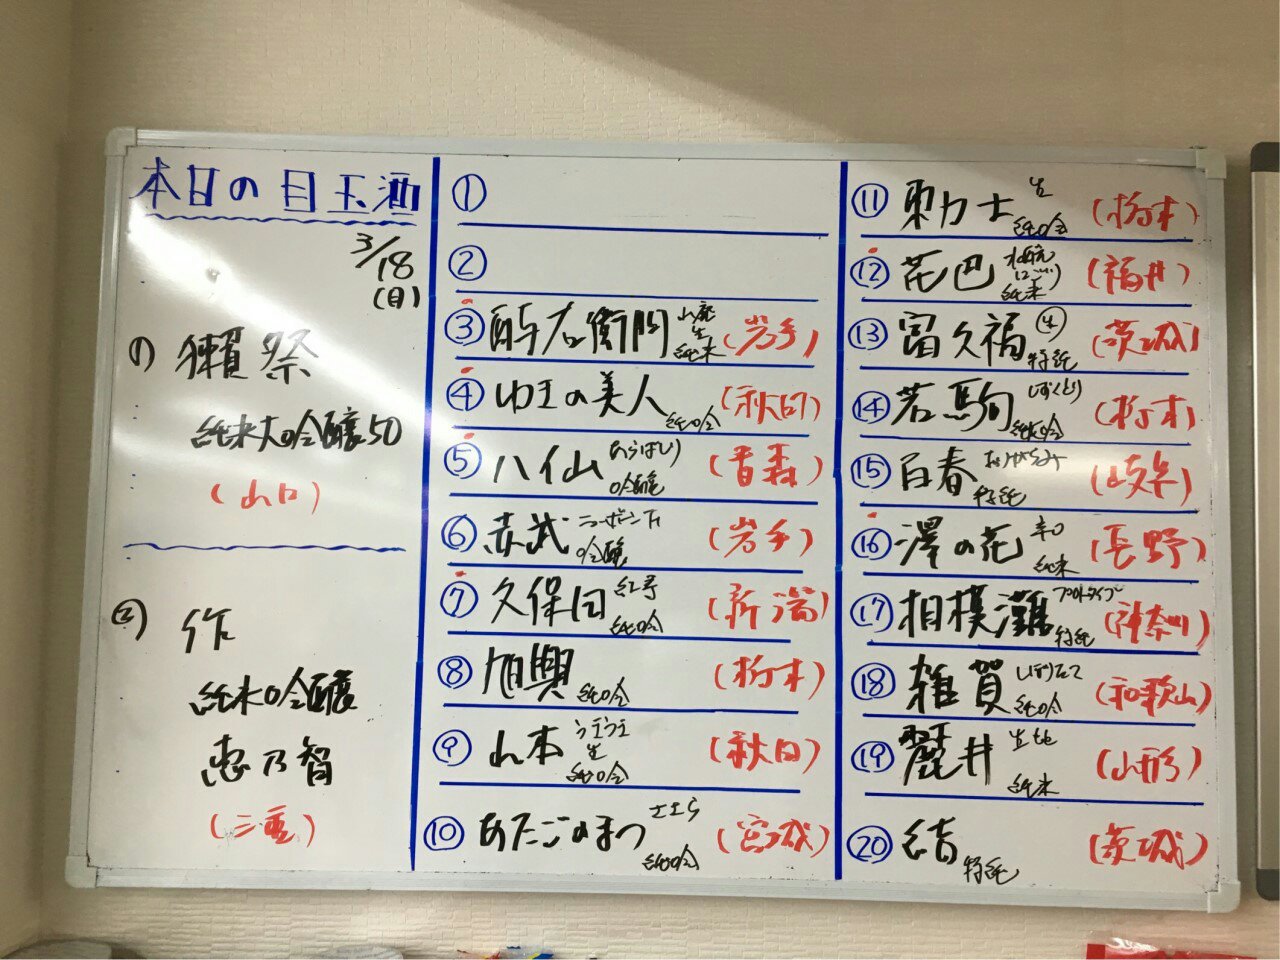 本日の目玉酒
3/18
(日)
の) 獺祭
純米大吟醸50
(山口)
作
純米吟醸
恵乃智
(三重)
①
②
③ 酉与右衛門 山廃 生 純米 (岩手)
④ ゆきの美人 純吟 (秋田)
⑤ 八仙 あらばしり 吟醸 (青森)
⑥ 赤武 吟醸 (岩手)
⑦ 久保田 紅寿 純吟 (新潟)
⑧ 旭興 純吟 (栃木)
⑨ 山本 うきうき 生 純吟 (秋田)
⑩ あたごのまつ ささら 純吟 (宮城)
⑪ 東力士 生 純吟 (栃木)
⑫ 花巴 水酛 純米 (福井)
⑬ 富久福 生 特純 (茨城)
⑭ 若駒 しずくとり 純吟 (栃木)
⑮ 百春 おりがらみ 特純 (岐阜)
⑯ 澤の花 辛口 純米 (長野)
⑰ 相模灘 プロトタイプ 特純 (神奈川)
⑱ 雑賀 しぼりたて 純吟 (和歌山)
⑲ 麓井 生もと 純米 (山形)
⑳ 結 特純 (茨城)